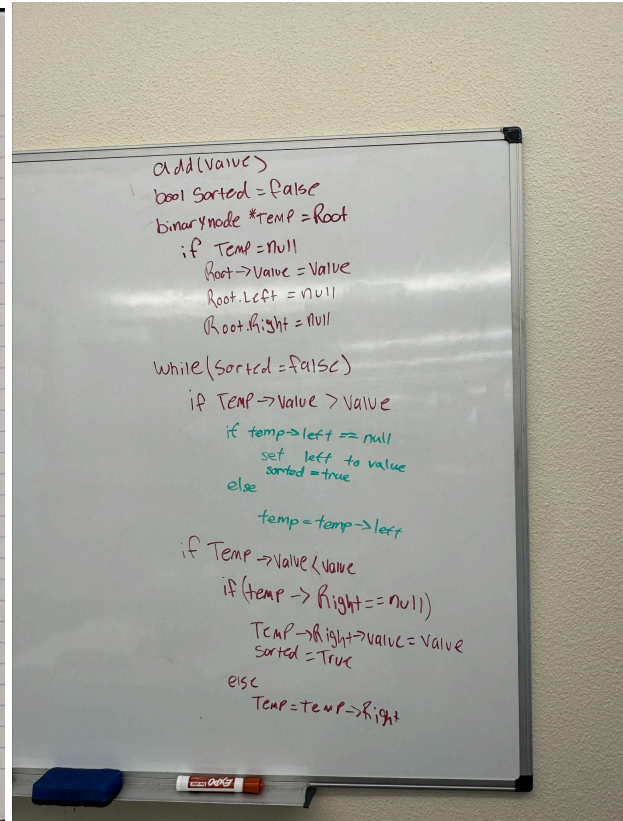 add(value)
bool Sorted = false
binarynode *Temp = Root
if Temp = null
Root->Value = Value
Root.Left = null
Root.Right = null
while(sorted = false)
if Temp -> Value > Value
if temp->left == null
set left to value
sorted = true
else
temp = temp->left
if Temp -> Value < Value
if (temp -> Right == null)
Temp->Right->value = Value
Sorted = True
else
Temp = temp->Right
EXPO